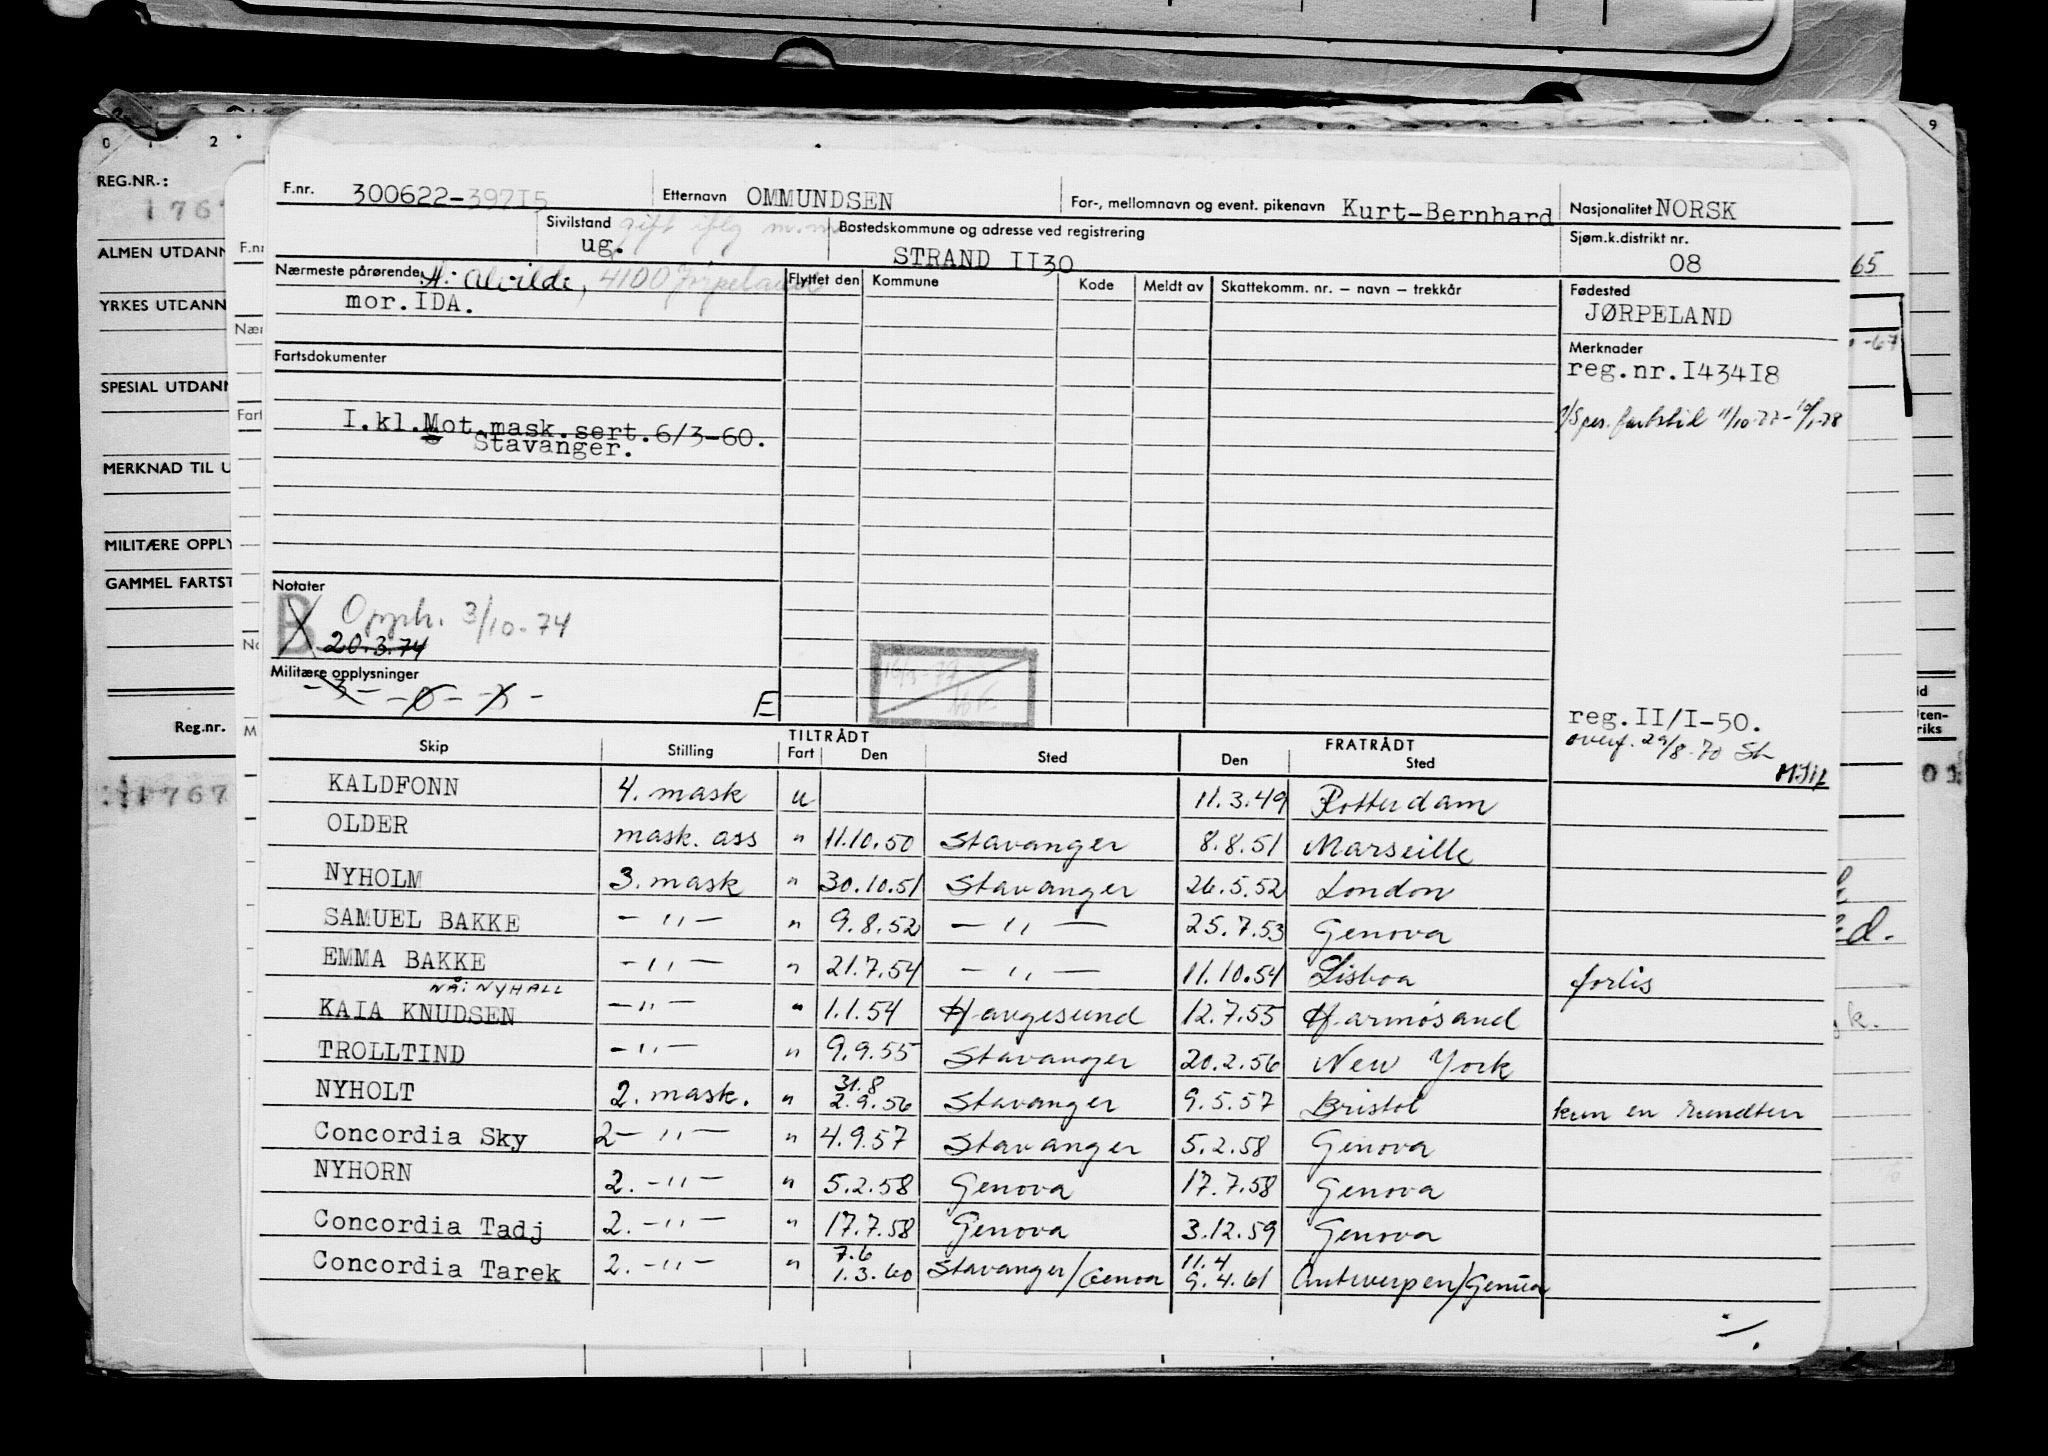 0 1 2
9
REG.NR.:
1767
ALMEN UTDANN
YRKES UTDANN
SPESIAL UTDANN
MERKNAD TIL U
MILITÆRE OPPLY
GAMMEL FARTST
Reg.nr.
1767
F.nr. 300622-39715 Etternavn OMMUNDSEN For-, mellomnavn og event. pikenavn Kurt-Bernhard Nasjonalitet NORSK
Sivilstand gift iflg m.m
ug.
Bostedskommune og adresse ved registrering
STRAND II30
Sjøm.k.distrikt nr.
08
65
Nærmeste pårørende H: Alvilde, 4100 Jørpeland
mor.IDA.
Flyttet den Kommune Kode Meldt av Skattekomm. nr. – navn – trekkår
Fødested
JØRPELAND
Fartsdokumenter
I.kl.Mot.mask.sert.6/3-60.
Stavanger.
Merknader
reg.nr.I434I8
Spes. fartstid 11/10-77-10/1-78
Notater
B Opph. 3/10-74
20.3.74
Militære opplysninger
E
reg.II/I-50.
overf. 29/8-70 Sh
Skip Stilling TILTRÅDT Fart Den Sted FRATRÅDT Den Sted
KALDFONN 4. mask u 11.3.49 Rotterdam
OLDER mask. ass " 11.10.50 Stavanger 8.8.51 Marseille
NYHOLM 3. mask " 30.10.51 Stavanger 26.5.52 London
SAMUEL BAKKE — " — " 9.8.52 — " — 25.7.53 Genova
EMMA BAKKE — " — " 21.7.54 — " — 11.10.54 Lisboa forlis
NÅ: NYHALL
KAIA KNUDSEN — " — " 1.1.54 Haugesund 12.7.55 Harnösand
TROLLTIND — " — " 9.9.55 Stavanger 20.2.56 New York
NYHOLT 2. mask. " 31.8 2.9.56 Stavanger 9.5.57 Bristol kun en rundtur
Concordia Sky 2 — " — " 4.9.57 Stavanger 5.2.58 Genova
NYHORN 2. — " — " 5.2.58 Genova 17.7.58 Genova
Concordia Tadj 2. — " — " 17.7.58 Genova 3.12.59 Genova
Concordia Tarek 2. — " — " 7.6 1.3.60 Stavanger/Genoa 11.4 9.4.61 Antwerpen/Genua